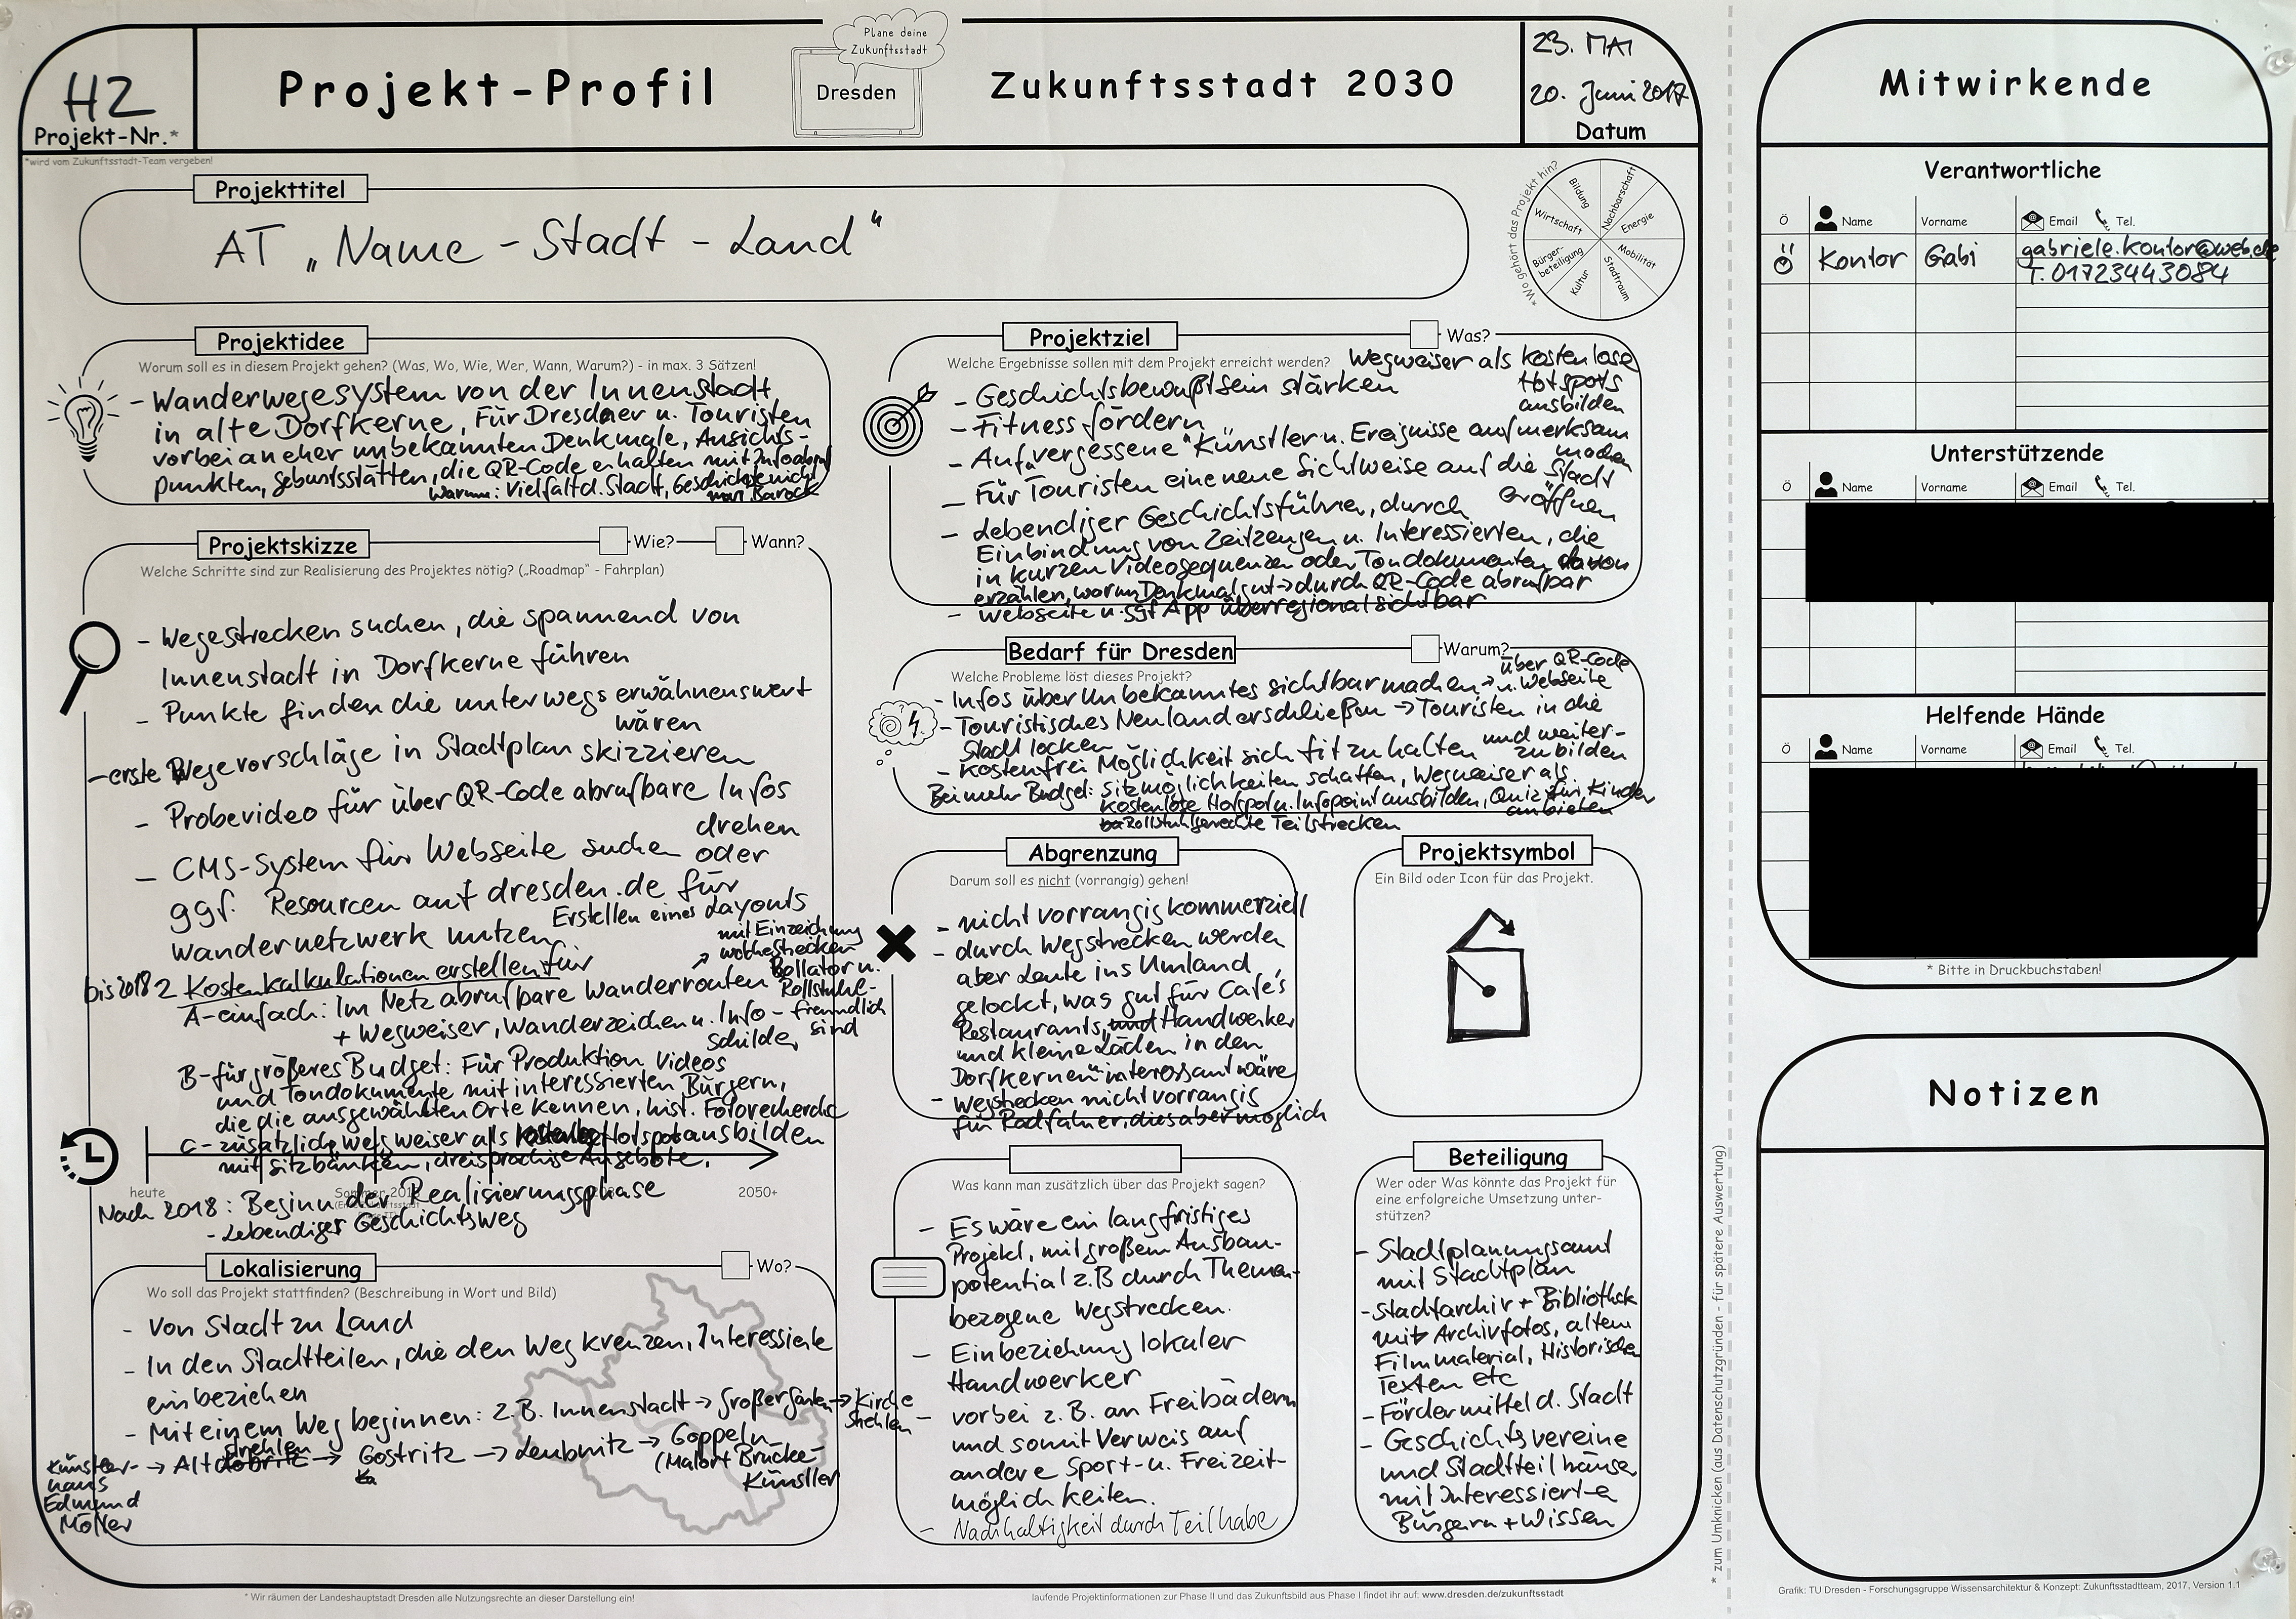 Plane deine
Zukunftsstadt
Dresden
H2
Projekt-Nr.*
*wird vom Zukunftsstadt-Team vergeben!
Projekt-Profil
Zukunftsstadt 2030
23. MAI
20. Juni 2017
Datum
Projekttitel
AT „Name - Stadt - Land“
*Wo gehört das Projekt hin?
Bildung
Nachbarschaft
Energie
Mobilität
Stadtraum
Kultur
Bürger-
beteiligung
Wirtschaft
Projektidee
Worum soll es in diesem Projekt gehen? (Was, Wo, Wie, Wer, Wann, Warum?) - in max. 3 Sätzen!
- Wanderwegesystem von der Innenstadt
in alte Dorfkerne, Für Dresdner u. Touristen
vorbei an eher unbekannten Denkmale, Ansichts-
punkten, Geburtsstätten, die QR-Code erhalten mit Infoabruf
Warum: Vielfalt d. Stadt, Geschichte nicht
nur Barock
Projektskizze
Wie?
Wann?
Welche Schritte sind zur Realisierung des Projektes nötig? („Roadmap“ - Fahrplan)
- Wegestrecken suchen, die spannend von
Innenstadt in Dorfkerne führen
- Punkte finden die unterwegs erwähnenswert
wären
- erste Wegevorschläge in Stadtplan skizzieren
- Probevideo für über QR-Code abrufbare Infos
drehen
- CMS-System für Webseite suchen oder
ggf. Resourcen auf dresden.de für
Wandernetzwerk nutzen
Erstellen eines Layouts
mit Einzeichnung
welche Strecken
Rollator u.
Rollstuhl-
freundlich
sind
bis 2018 2 Kostenkalkulationen erstellen für
A-einfach: Im Netz abrufbare Wanderrouten
+ Wegweiser, Wanderzeichen u. Info-
schilder
B-für größeres Budget: Für Produktion Videos
und Tondokumente mit interessierten Bürgern,
die die ausgewählten Orte kennen, hist. Fotorecherche
C- zusätzlich Wegweiser als Hotspot ausbilden
mit Sitzbänken, dreisprachige Angebote.
heute
2050+
Nach 2018: Beginn der Realisierungsphase
- Lebendiger Geschichtsweg
Lokalisierung
Wo?
Wo soll das Projekt stattfinden? (Beschreibung in Wort und Bild)
- Von Stadt zu Land
- In den Stadtteilen, die den Weg kreuzen, Interessierte
einbeziehen
- Mit einem Weg beginnen: z.B. Innenstadt → Großer Garten → Kirche
Strehlen
Künstler-
haus
Edmund
Möller
→ Altstrehlen → Gostritz → Leubnitz → Goppeln
(Malort Brücke-
Künstler
Projektziel
Was?
Welche Ergebnisse sollen mit dem Projekt erreicht werden?
Wegweiser als kostenlose
Hotspots
ausbilden
- Geschichtsbewußtsein stärken
- Fitness fördern
- Auf „vergessene“ Künstler u. Ereignisse aufmerksam
machen
- Für Touristen eine neue Sichtweise auf die Stadt
eröffnen
- Lebendiger Geschichtsführer, durch
Einbindung von Zeitzeugen u. Interessierten, die
in kurzen Videosequenzen oder Tondokumenten davon
erzählen, worum Denkmal gut → durch QR-Code abrufbar
- Webseite u. ggf App überregional sichtbar
Bedarf für Dresden
Warum?
Welche Probleme löst dieses Projekt?
- Infos über Unbekanntes sichtbar machen → über QR-Code
u. Webseite
- Touristisches Neuland erschließen → Touristen in die
Stadt locken
- Kostenfrei Möglichkeit sich fit zu halten und weiter-
zubilden
Bei mehr Budget: Sitzmöglichkeiten schaffen, Wegweiser als
kostenlose Hotspot u. Infopoint ausbilden, Quiz für Kinder
anbieten
Rollstuhlgerechte Teilstrecken
Abgrenzung
Darum soll es nicht (vorrangig) gehen!
- nicht vorrangig kommerziell
- durch Wegstrecken werden
aber Leute ins Umland
gelockt, was gut für Cafés,
Restaurants, und Handwerker
und kleine Läden in den
„Dorfkernen“ interessant wäre
- Wegstrecken nicht vorrangig
für Radfahrer, dies aber möglich
Projektsymbol
Ein Bild oder Icon für das Projekt.
Was kann man zusätzlich über das Projekt sagen?
- Es wäre ein langfristiges
Projekt, mit großem Ausbau-
potential z.B durch Themen-
bezogene Wegstrecken.
- Einbeziehung lokaler
Handwerker
- vorbei z.B. an Freibädern
und somit Verweis auf
andere Sport- u. Freizeit-
möglichkeiten.
- Nachhaltigkeit durch Teilhabe
Beteiligung
Wer oder Was könnte das Projekt für
eine erfolgreiche Umsetzung unter-
stützen?
- Stadtplanungsamt
mit Stadtplan
- Stadtarchiv + Bibliothek
mit Archivfotos, altem
Filmmaterial, Historischen
Texten etc
- Fördermittel d. Stadt
- Geschichtsvereine
und Stadtteilhäuser
mit Interessierte
Bürgern + Wissen
* Wir räumen der Landeshauptstadt Dresden alle Nutzungsrechte an dieser Darstellung ein!
laufende Projektinformationen zur Phase II und das Zukunftsbild aus Phase I findet ihr auf: www.dresden.de/zukunftsstadt
* zum Umknicken (aus Datenschutzgründen - für spätere Auswertung)
Mitwirkende
Verantwortliche
Ö Name Vorname Email Tel.
Kontor Gabi gabriele.kontor@web.de
T. 01723443084
Unterstützende
Ö Name Vorname Email Tel.
Helfende Hände
Ö Name Vorname Email Tel.
* Bitte in Druckbuchstaben!
Notizen
Grafik: TU Dresden - Forschungsgruppe Wissensarchitektur & Konzept: Zukunftsstadtteam, 2017, Version 1.1